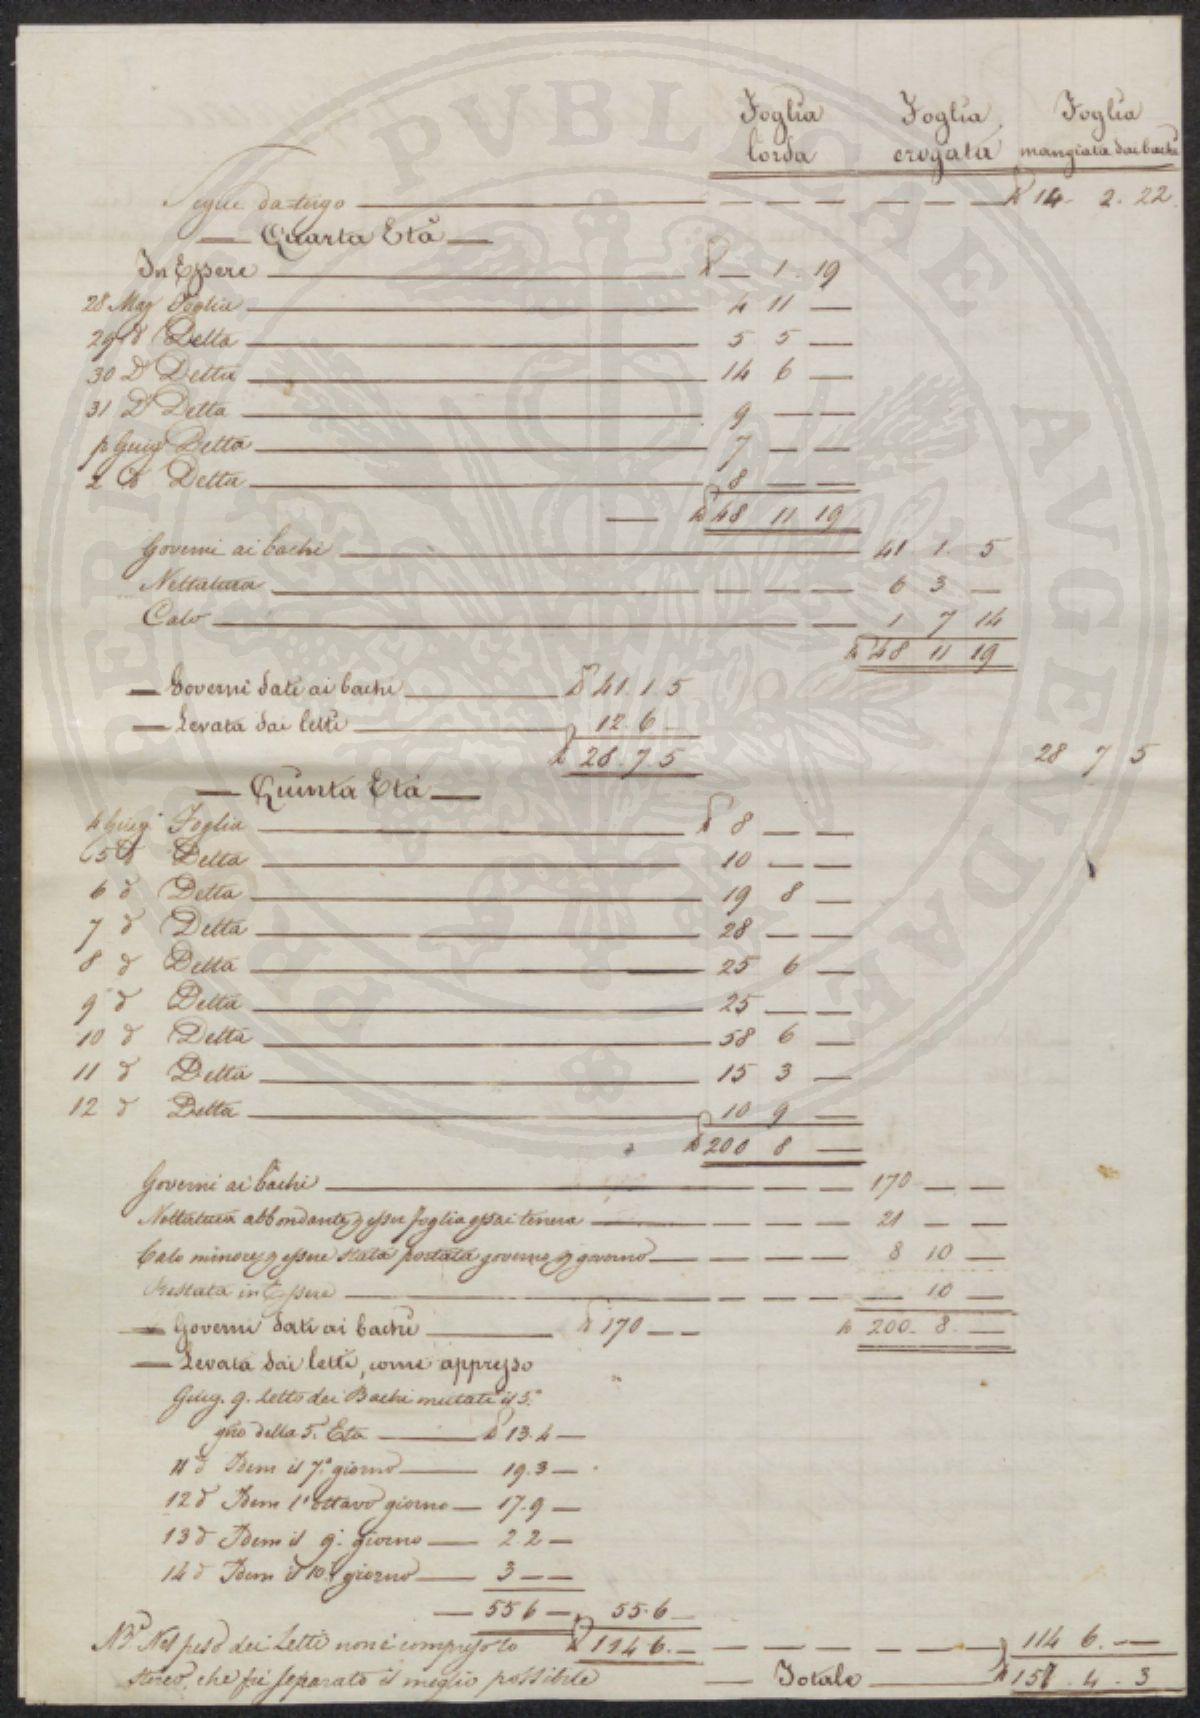 Foglia Foglia Foglia
lorda erogata mangiata dai bachi
Segue da tergo 14. 2. 22
Quarta Età
In Essere 1. 19
28 Mag Foglia 4 11
29 d Detta 5 5
30 D Detta 14 6
31 D Detta 9
p Giug Detta 7
2 d Detta 8
48 11 19
Governi ai bachi 41. 1. 5
Nettatura 6 3
Calo 1 7 14
48 11 19
Governi dati ai bachi 41. 1. 5
Levata dai letti 12. 6
28. 7. 5 28 7 5
Quinta Età
4 Giug Foglia 8
5 d Detta 10
6 d Detta 19 8
7 d Detta 28
8 d Detta 25 6
9 d Detta 25
10 d Detta 58 6
11 d Detta 15 3
12 d Detta 10 9
200 8
Governi ai bachi 170
Nettatura abbondante p esser foglia assai tenera 21
Calo minore p essere stata portata governo p governo 8 10
Restata in Essere 10
Governi dati ai bachi 170 200. 8.
Levata dai letti, come appresso
Giug. 9. letto dei Bachi mutati il 5.°
gno della 5. Età 13. 4
11 d Idem il 7.° giorno 19. 3
12 d Idem l'ottavo giorno 17. 9
13 d Idem il 9.° giorno 2. 2
14 d Idem il 10.° giorno 3
55 6 55. 6
NB. Nel peso dei Letti non è compreso lo 114 6. 114 6.
sterco, che fu separato il meglio possibile Totale 157. 4. 3
PERIT PVBLICAE AVGENDAE